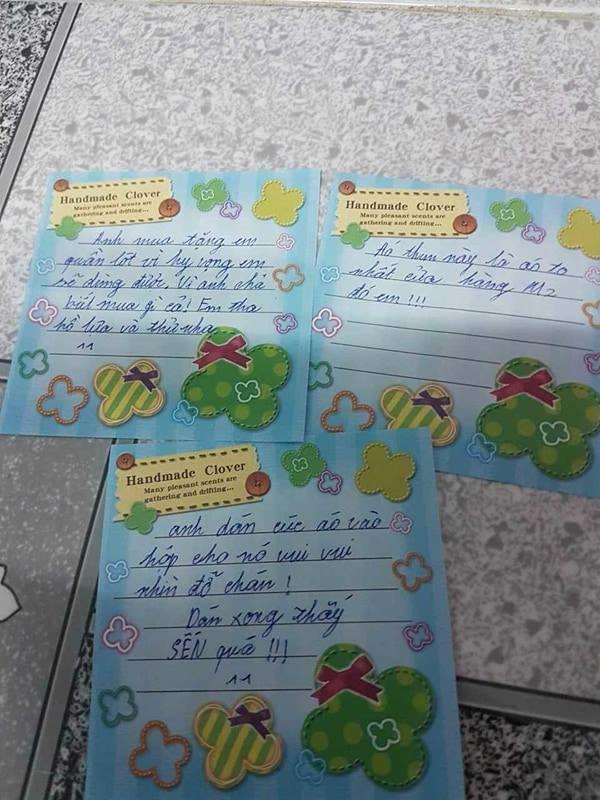 Handmade Clover
Many pleasant scents are
gathering and drifting...
Anh mua tặng em
quần lót vì hy vọng em
sẽ dùng được. Vì anh chả
biết mua gì cả! Em tha
hồ lựa và thử nha
^^
Handmade Clover
Many pleasant scents are
gathering and drifting...
Áo thun này là áo to
nhất cửa hàng
đó em !!!
Handmade Clover
Many pleasant scents are
gathering and drifting...
anh dán cúc áo vào
hộp cho nó vui vui
nhìn đỡ chán !
Dán xong thấy
SẾN quá !!!
^^